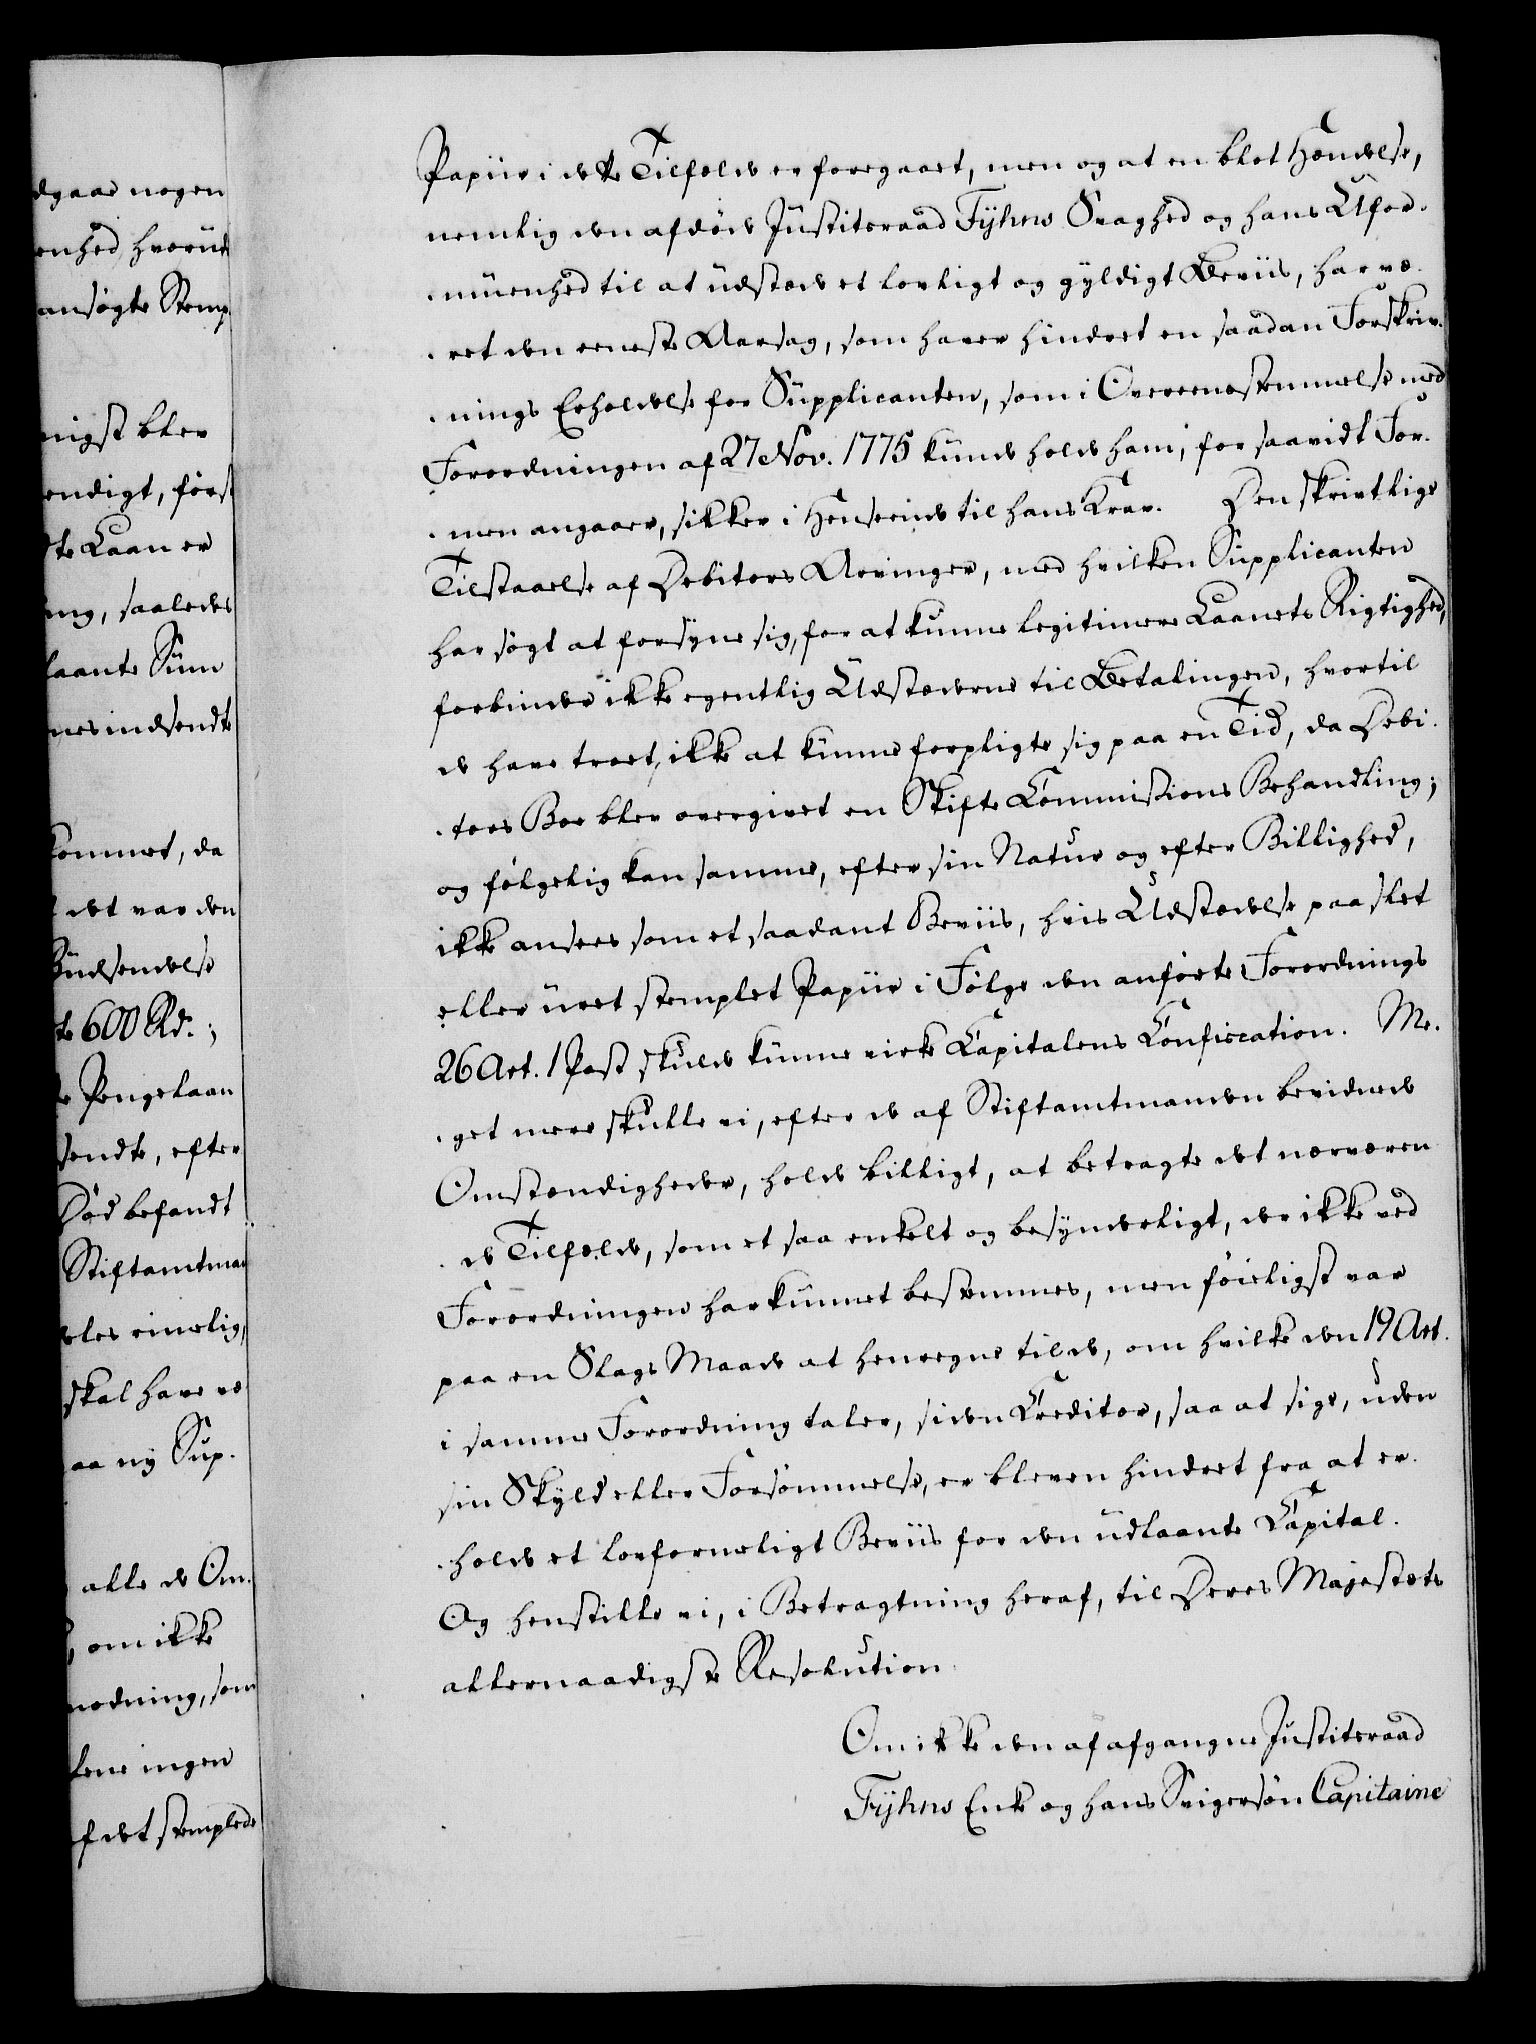 dgaae nogen
enhed hvorud
ansøgte Stemp
nigst blev
endigt, først
te Laan er
ing, saaledes
laante Sum
nes indsendte
kommet, da
det var den
Tüdsendelse
te 600 Rd.;
e Pengelaan
sendte, efter
Død befandt
Stiftamtman
eles rimelig,
skal have væ
aa ny Sup.
alle de Om.
, om ikke
modning, som
lene ingen
f det stemplede
Papiir i dette Tilfælde er foregaaet, men og at en blot Hændelse,
nemlig den afdøde Justitsraad Fyhns Svaghed og hans Ufor.
.muenhed til at udstæde et lovligt og gyldigt Beviis, har væ.
.ret den eeneste Aarsag, som haver hindret en saadan Forskriv.
.nings Erholdelse for Supplicanten, som i Overeensstemmelse med
Forordningen af 27 Nov. 1775 kunde holde ham, for saavidt For.
.men angaaer, sikker i Henseende til hans Krav. Den skriftlige
Tilstaaelse af Debitors Arvinger, med hvilken Supplicanten
har søgt at forsyne sig, for at kunne legitimere Laanets Rigtighed,
forbinder ikke egentlig Udstæderne til Betalingen, hvortil
de have troet, ikke at kunne forpligte sig paa en Tid, da Debi.
.tors Boe blev overgivet en Skifte Commissions Behandling;
og følgelig kan samme, efter sin Natur og efter Billighed,
ikke ansees som et saadant Beviis, hvis Udstædelse paa slet
eller uret stemplet Papiir i Følge den anførte Forordnings
26 Art. 1 Post skulde kunne virke Capitalens Confiscation. Me.
.get mere skulle vi, efter de af Stiftamtmanden bevidnede
Omstændigheder, holde billigt, at betragte det nærværen
.de Tilfælde, som et saa enkelt og besynderligt, der ikke ved
Forordningen har kunnet bestemmes, men føieligst var
paa en Slags Maade at henregne til de, om hvilke den 19 Art.
i samme Forordning taler, siden Creditor, saa at sige, uden
sin Skyld eller Forsømmelse, er bleven hindret fra at er.
.holde et lovformeligt Beviis for den udlaante Capital.
Og henstille vi, i Betragtning heraf, til Deres Majestæts
allernaadigste Resolution.
Om ikke den af afgangne Justitsraad
Fyhns Enke og hans Svigersøn Capitaine